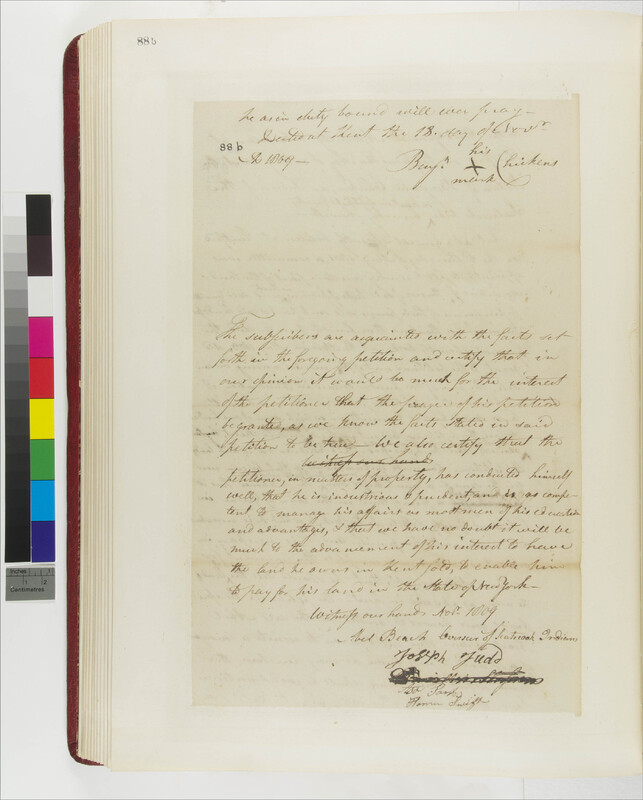 88b
he as in duty bound will ever pray—
Dated at Kent the 18. day of Novr
88 b
AD 1809—
his
Benjn X Chickens
mark
The subscribers are acquainted with the facts set
forth in the foregoing petition and certify that in
our opinion it would be much for the interest
of the petitioner that the prayer of his petition
be granted, as we know the facts stated in said
petition to be true— We also certify that the
witness our hands
petitioner, in matters of property, has conducted himself
well, that he is industrious & prudent, and is as compe-
tent to manage his affairs as most men of his education
and advantages, & that we have no doubt it will be
much to the advancement of his interest to have
the land he owns in Kent sold, to enable him
to pay for his land in the State of New York—
Witness our hands Novr. 1809
Abel Beach Overseer of Scaticook Indians
Joseph Judd
Swift
Inches
1 2
Centimetres